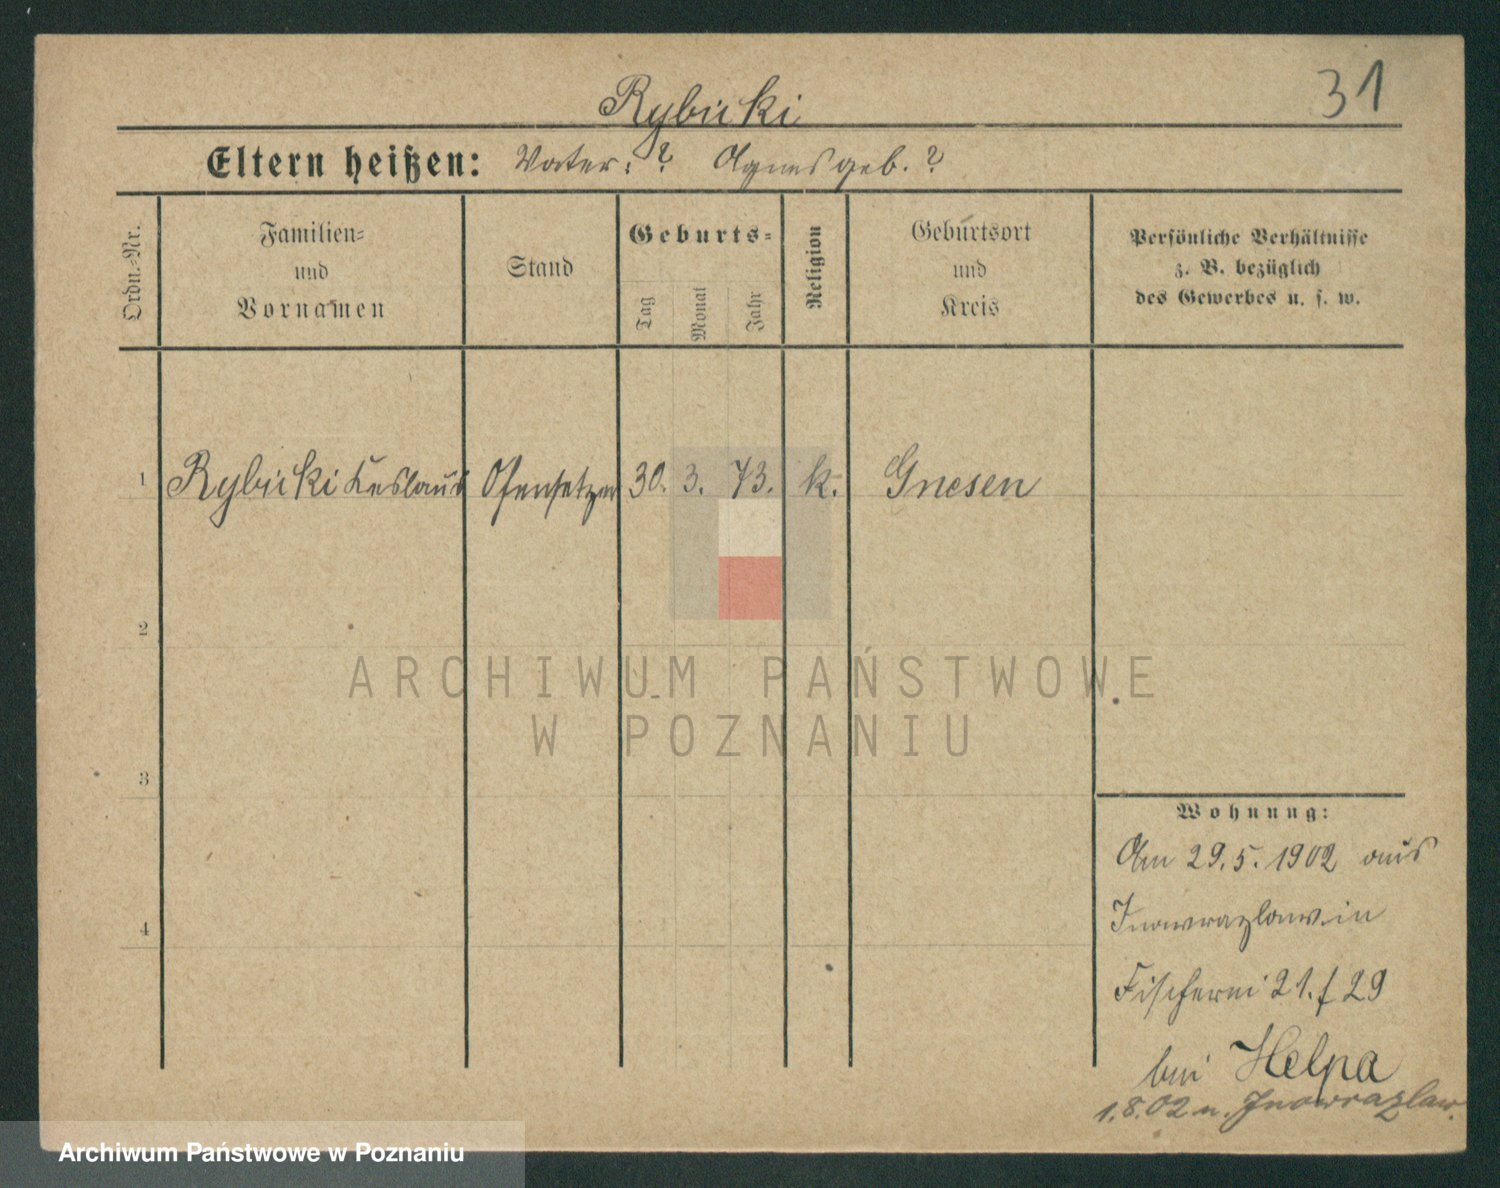 31
Rybicki
Eltern heißen: Vater: ? Agnes geb. ?
Ordn.-Nr.
Familien-
und
Vornamen
Stand
Geburts-
Tag
Monat
Jahr
Religion
Geburtsort
und
Kreis
Persönliche Verhältnisse
z. B. bezüglich
des Gewerbes u. s. w.
1 Rybicki Ceslaus Ofensetzer 30. 3. 73. k. Gnesen
2
3
4
ARCHIWUM PAŃSTWOWE
W POZNANIU
Wohnung:
Am 29.5.1902 aus
Inowrazlaw in
Fischerei 21. f 29
bei Helpa
1.8.02 n. Inowrazlaw.
Archiwum Państwowe w Poznaniu